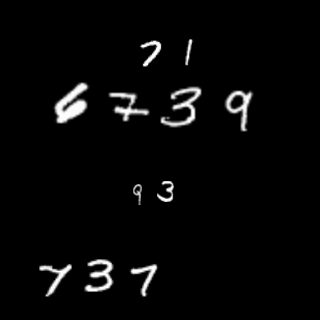 71
6739
93
737